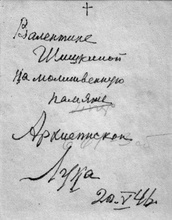 Валентине
Шишкиной
на молитвенную
память
Архиепископ
Лука
20.V.46